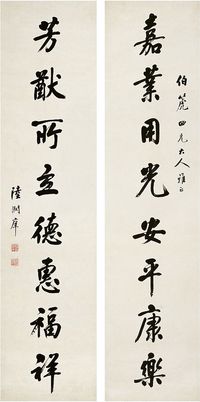 嘉業用光安平康樂
伯籠四兄大人雅正
芳猷所立德惠福祥
陸潤庠